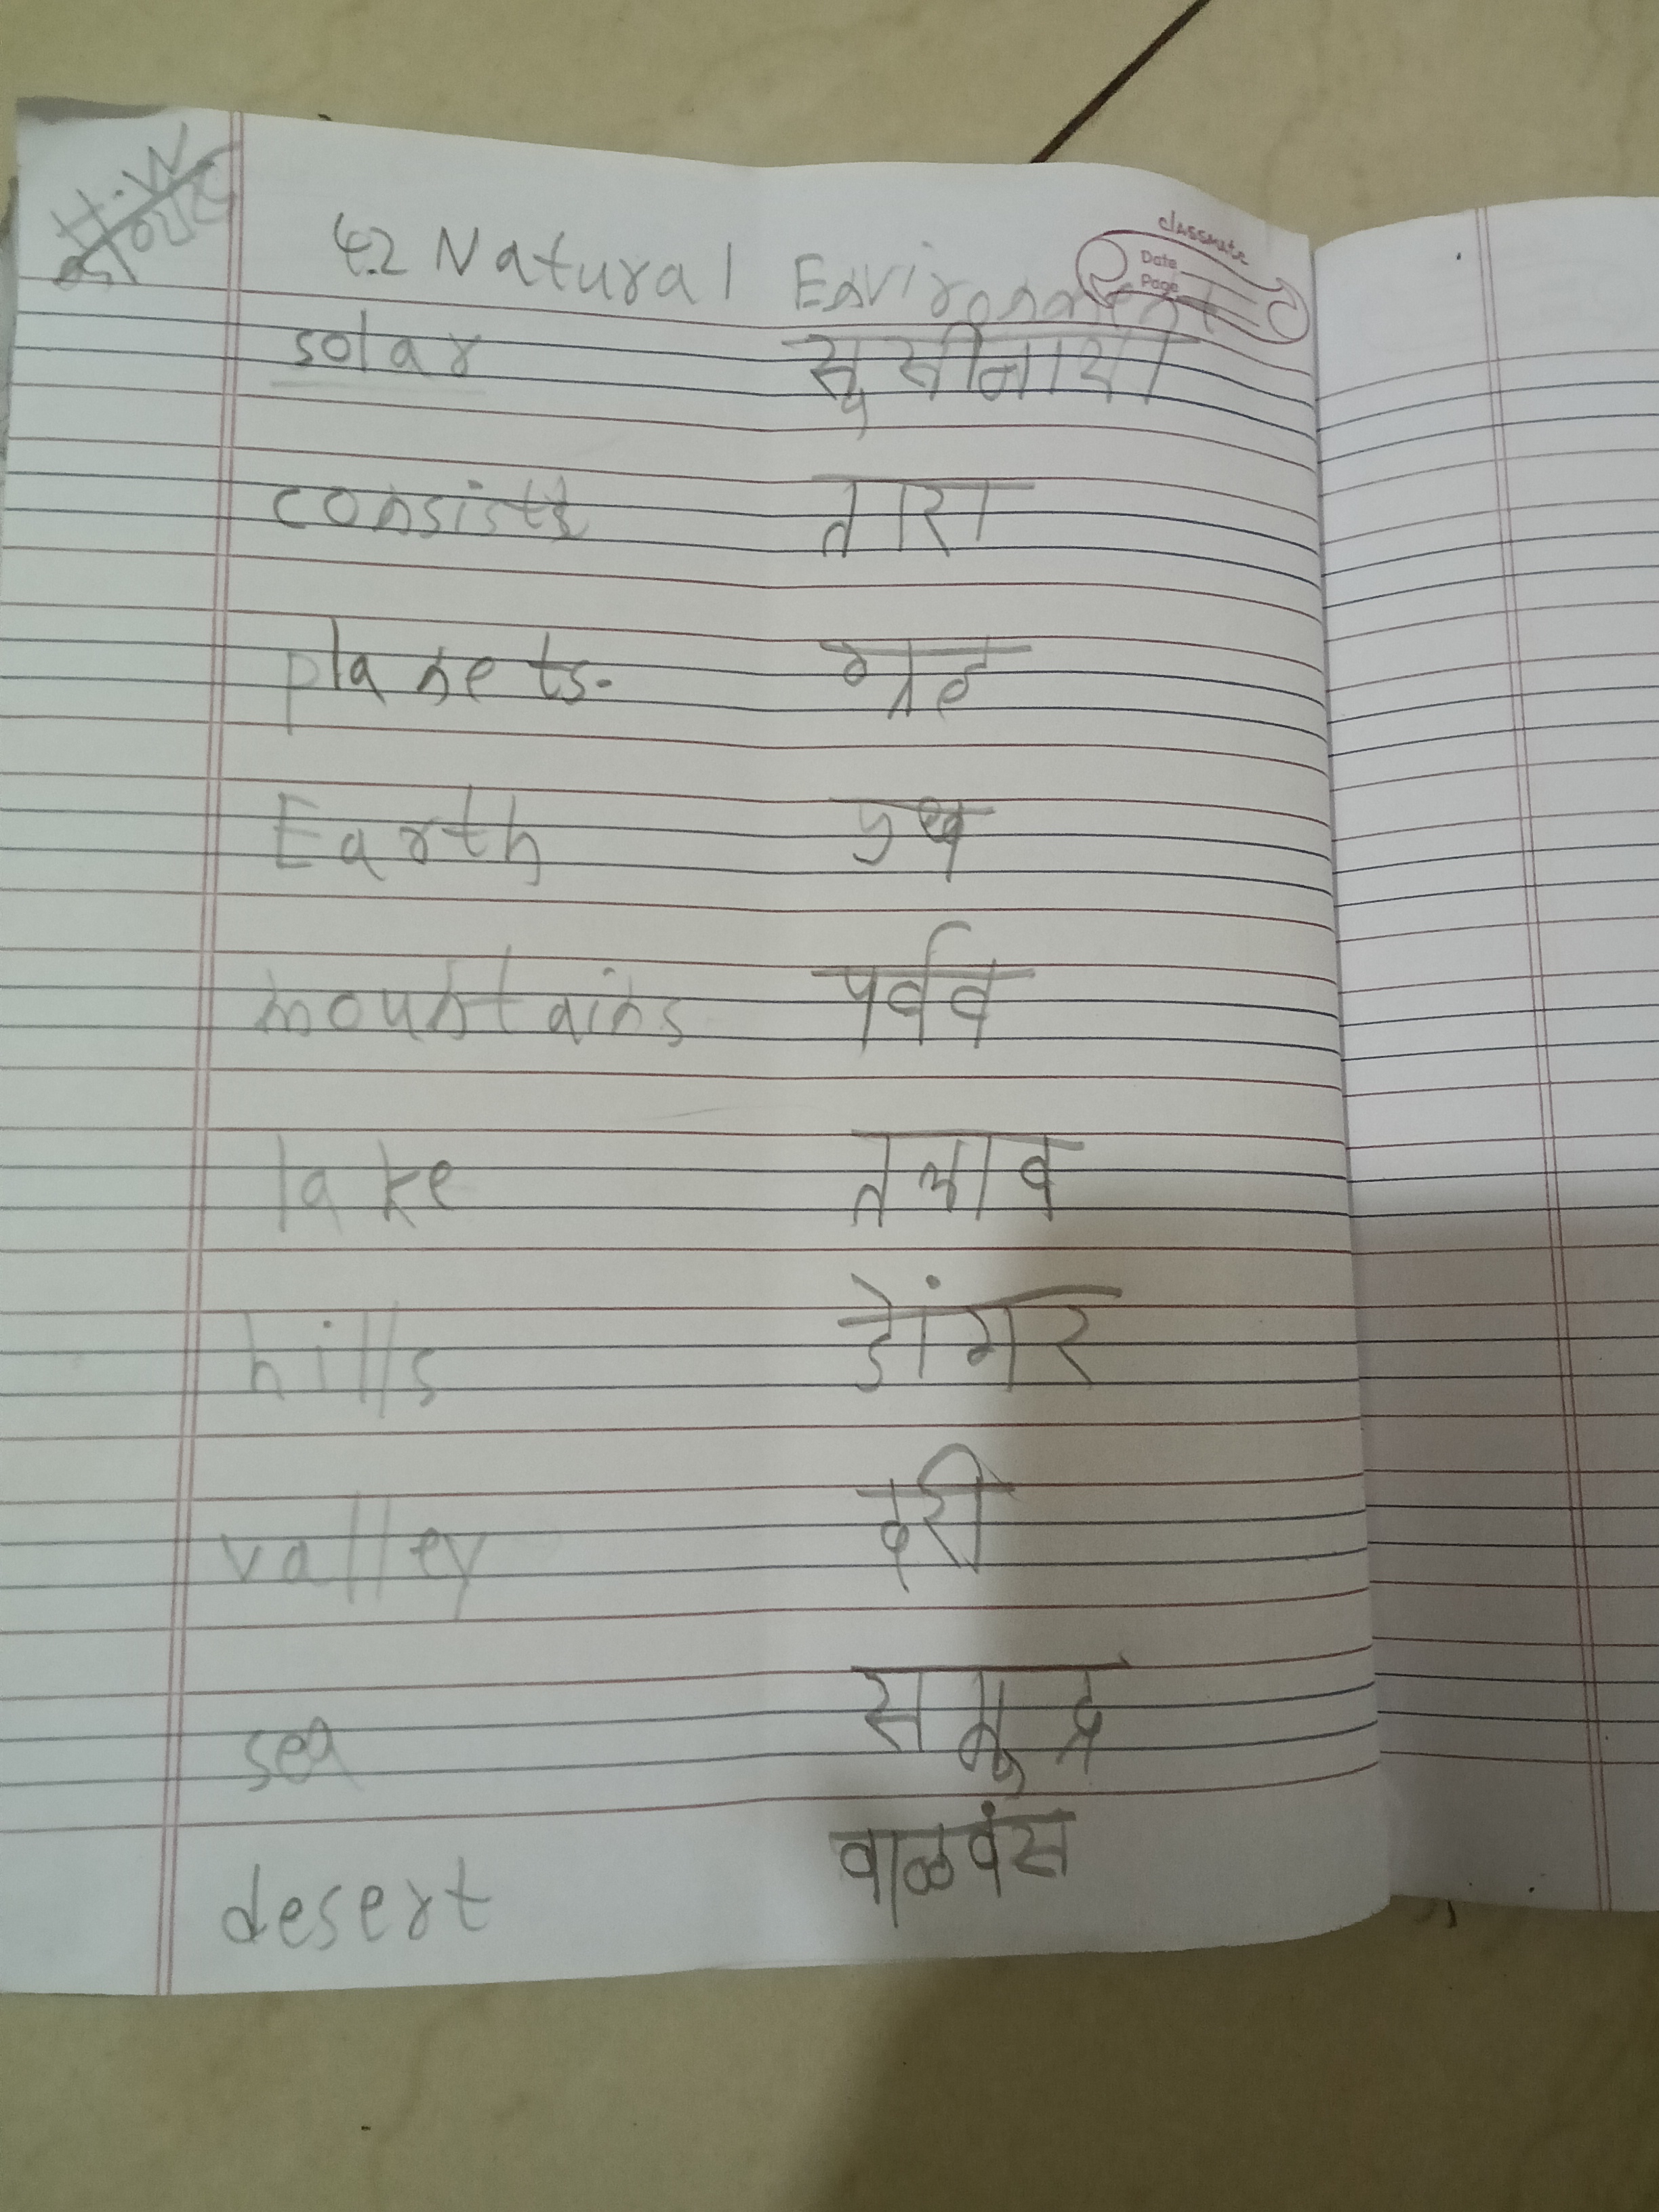 H.W
4.2 Natural Environment
classmate
Date
Page
solar
consists तारा
planets. ग्रह
Earth
mountains पर्वव
lake तलाव
hills डोंगर
valley दरी
sea समुद्र
desert वाळवंस